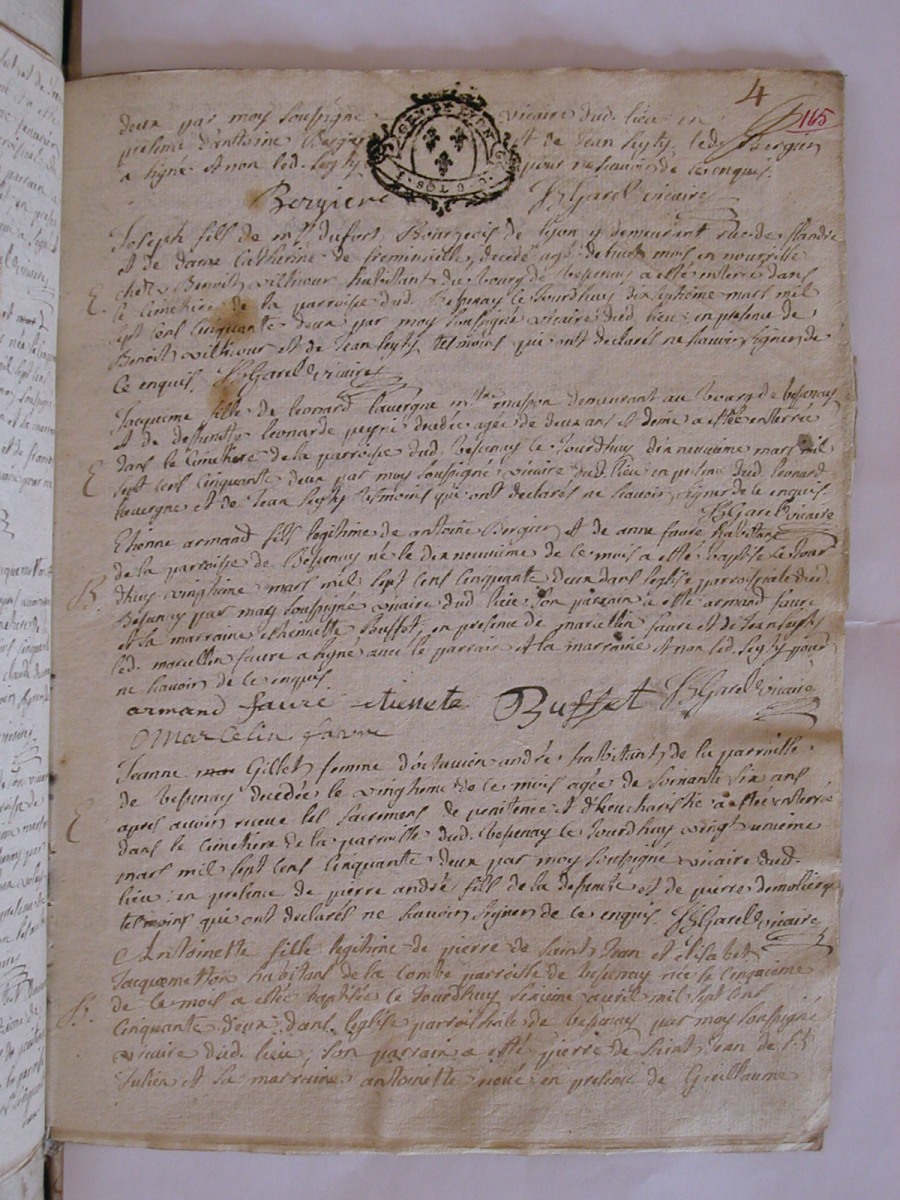 4
165
deux par moy soussigné vicaire dud. lieu en
presence d'antoine Bergier et de Jean leyty led. Bergier
a signé et non led. leyty pour ne scavoir de ce enquis.
GEN. DE LYON
Bergier J Garel vicaire
Joseph fils de mr. dufort Bourgeois de lyon y demeurant rue de flandre
et de dame Catherine de freminville, decedé agé de huit mois en nourrisse
chez Benoit vilhour habitant du bourg de bessenay a esté enterré dans
E. le cimetière de la parroisse dud. Bessenay ce Jourdhuy dixseptième mars mil
sept cens cinquante deux par moy soussigné vicaire dud. lieu en presence de
Benoit vilhour et de Jean leyty tesmoins qui ont declarés ne scavoir signer de
ce enquis. J Garel vicaire
Jacqueme fille de leonard lauvergne mtre masson demeurant au bourg de bessenay
et de deffuncte leonarde peyni decedée agée de deux ans et demi a estée enterrée
E dans le cimetière de la parroisse dud. bessenay ce Jourdhuy dix neuvième mars mil
sept cens cinquante deux par moy soussigné vicaire dud. lieu en presence dud. leonard
lauvergne et de Jean leyty tesmoins qui ont declarés ne scavoir signer de ce enquis.
J Garel vicaire
Etienne armand fils legitime de antoine Bergier et de anne faure habitans
de la parroisse de Bessenay né le dix neuvième de ce mois a esté baptisé ce Jour
B. dhuy vingtième mars mil sept cens cinquante deux dans leglise parroissiale dud.
Bessenay par moy soussigné vicaire dud. lieu son parrain a esté armand faure
et la marraine ethiennette Buffet, en presence de marcellin faure et de Jean leyty
led. marcellin faure a signé avec le parrain et la marraine et non led. leyty pour
ne scavoir de ce enquis
armand faure etienete Buffet J Garel vicaire
Marcelin faure
Jeanne Gillet femme d'octavien andré habitant de la parroisse
de bessenay decedée le vingtième de ce mois agée de soixante six ans
E après avoir receue les sacremens de penitence et d'heucharistie a estée enterrée
dans le cimetière de la parroisse dud. bessenay ce Jourdhuy vingt unième
mars mil sept cens cinquante deux par moy soussigné vicaire dud.
lieu en presence de pierre andré fils de la defuncte et de pierre
tesmoins qui ont declarés ne scavoir signer de ce enquis. J Garel vicaire
Antoinette fille legitime de pierre de Saint Jean et elisabet
Jacquemetton habitans de la Combe parroisse de bessenay née le cinquième
B. de ce mois a estée baptisée ce Jourdhuy sixième avril mil sept cens
cinquante deux dans leglise parroissiale de bessenay par moy soussigné
vicaire dud. lieu, son parrain a esté pierre de Saint Jean de St
Julien et sa marraine antoinette en presence de Guillaume